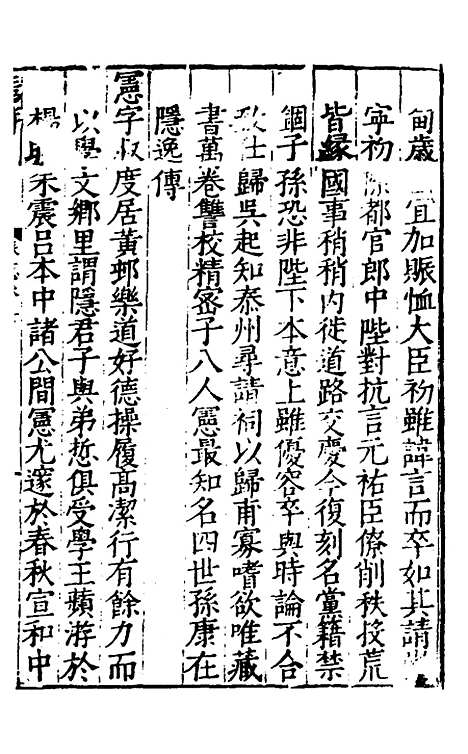 甸歲宜加賑恤大臣初雖諱言而卒如其請
寜初除都官郎中陛對抗言元祐臣僚削秩投荒
皆緣國事稍稍内徙道路交慶今復刻名黨籍禁
錮子孫恐非陛下本意上雖優容卒與時論不合
致仕歸吳起知泰州尋請祠以歸甫寡嗜欲唯藏
書萬卷讐校精密子八人憲最知名四世孫康在
隱逸傳
憲字叔度居黃邨樂道好德操履高潔行有餘力而
以學文鄉里謂隱君子與弟悊俱受學王蘋游於
楊時朱震呂本中諸公間憲尤邃於春秋宣和中